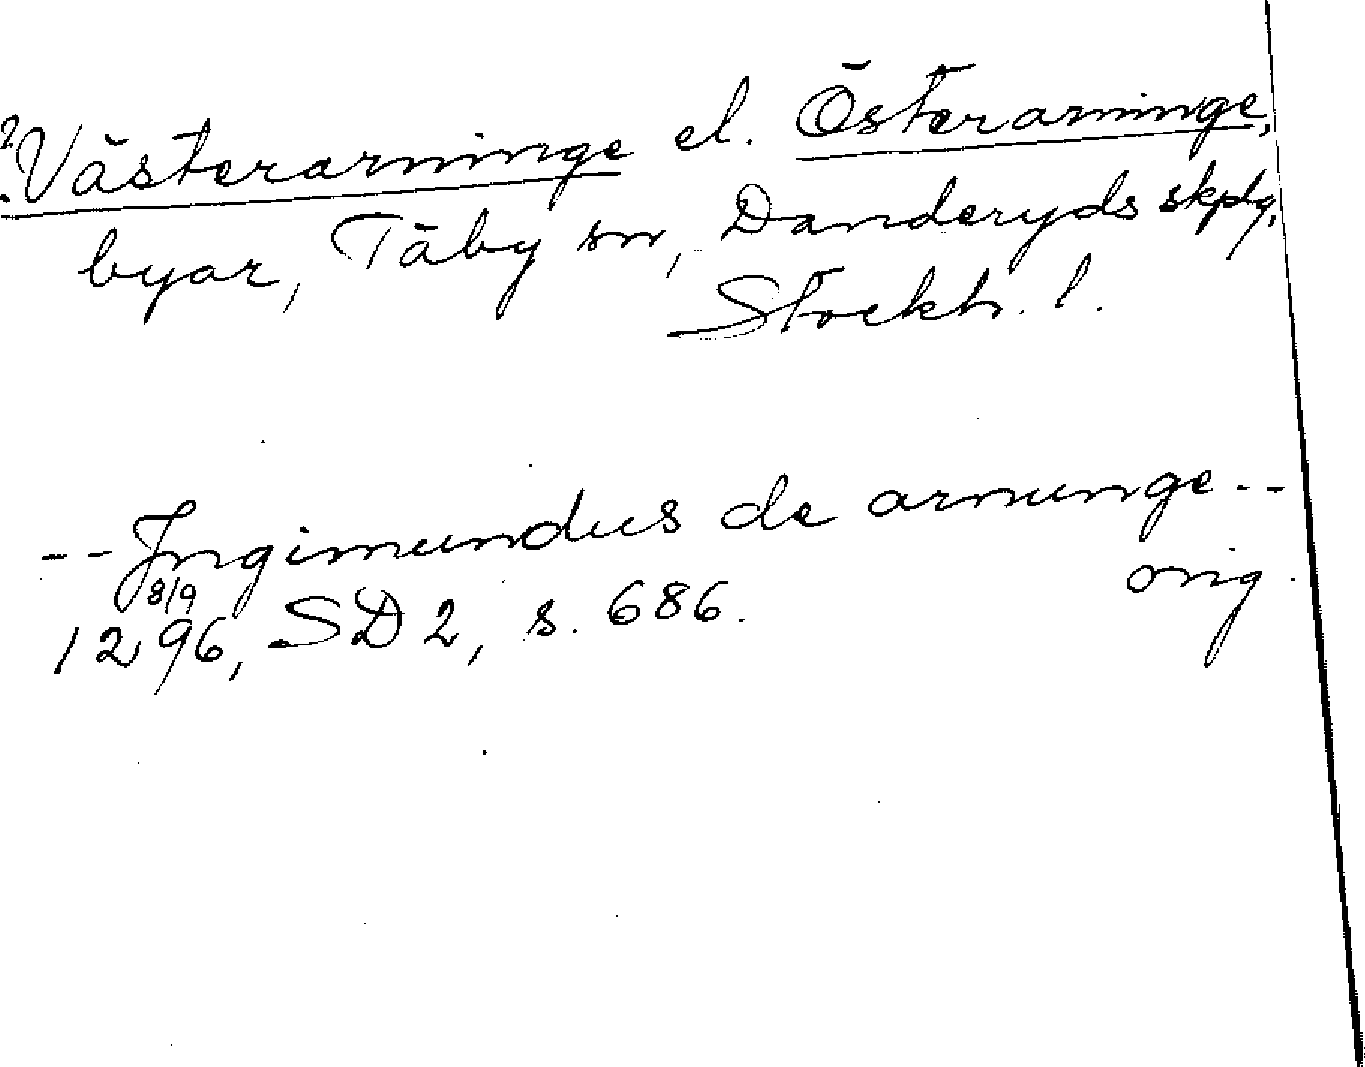 ? Västerarninge el. Österarninge,
byar, Täby sn, Danderyds skplg,
Stockh. l.
-- Ingimundus de arnunge --
8/9 orig.
1296, SD 2, s. 686.